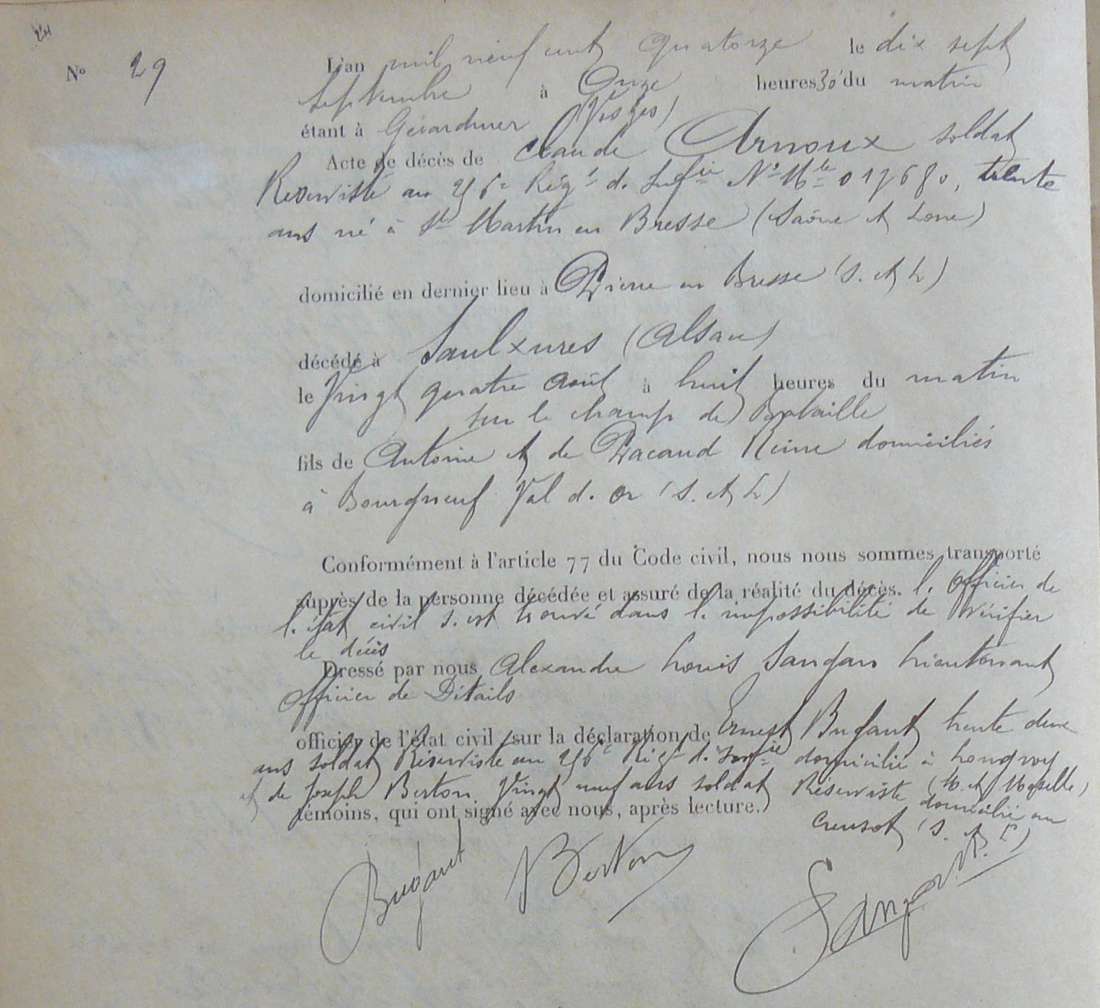 24
N° 29
L'an mil neuf cent quatorze le dix sept
Septembre à Onze heures 30' du matin
étant à Gérardmer (Vosges)
Acte de décès de Claude Arnoux soldat
Réserviste au 256e Régt d. Infie N° Mle 017680, trente
ans né à St Martin en Bresse (Saône et Loire)
domicilié en dernier lieu à Pierre en Bresse (S. et L)
décédé à Saulxures (Alsace)
le Vingt quatre Août à huit heures du matin
sur le champ de Bataille
fils de Antoine et de Pacaud Reine domiciliés
à Bourgneuf Val d. or (S. et L)
Conformément à l'article 77 du Code civil, nous nous sommes transporté
auprès de la personne décédée et assuré de la réalité du décès. l. Officier de
l. état civil s. est trouvé dans l. impossibilité de Vérifier
le décès
Dressé par nous Alexandre Louis Lieutenant
Officier de Détails
officier de l'état civil, sur la déclaration de Ernest Bugaut trente deux
ans soldat Réserviste au 256e Régt d. Infie domicilié à
(M. et Moselle)
et de Joseph Berton Vingt neuf ans soldat Réserviste domicilié au
témoins, qui ont signé avec nous, après lecture.
Creusot (S. et L)
Bugaut Berton